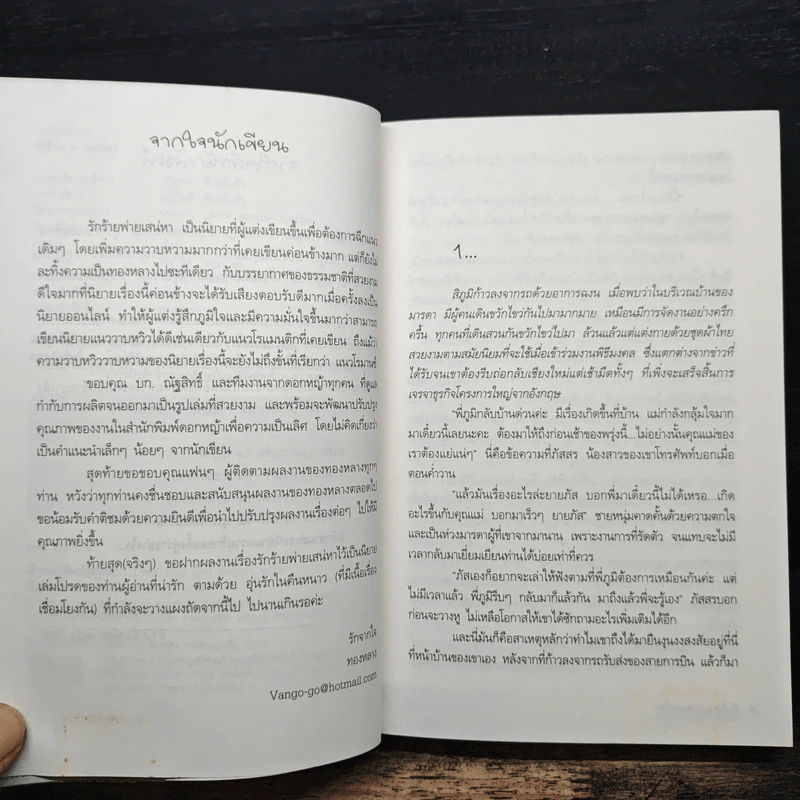 จากใจนักเขียน
รักร้ายพ่ายเสน่หา เป็นนิยายที่ผู้แต่งเขียนขึ้นเพื่อต้องการฉีกแนว
เดิมๆ โดยเพิ่มความวาบหวามมากกว่าที่เคยเขียนค่อนข้างมาก แต่ก็ยังไม่
ละทิ้งความเป็นทองหลางไปซะทีเดียว กับบรรยากาศของธรรมชาติที่สวยงาม
ดีใจมากที่นิยายเรื่องนี้ค่อนข้างจะได้รับเสียงตอบรับดีมากเมื่อครั้งลงเป็น
นิยายออนไลน์ ทำให้ผู้แต่งรู้สึกภูมิใจและมีความมั่นใจขึ้นมากว่าสามารถ
เขียนนิยายแนววาบหวิวได้ดีเช่นเดียวกับแนวโรแมนติกที่เคยเขียน ถึงแม้ว่า
ความวาบหวิววาบหวามของนิยายเรื่องนี้จะยังไม่ถึงขั้นที่เรียกว่า แนวโรมานซ์
ขอบคุณ บก. ณัฐสิทธิ์ และทีมงานจากดอกหญ้าทุกคน ที่ดูแล
กำกับการผลิตจนออกมาเป็นรูปเล่มที่สวยงาม และพร้อมจะพัฒนาปรับปรุง
คุณภาพของงานในสำนักพิมพ์ดอกหญ้าเพื่อความเป็นเลิศ โดยไม่คิดเกี่ยงว่า
เป็นคำแนะนำเล็กๆ น้อยๆ จากนักเขียน
สุดท้ายขอขอบคุณแฟนๆ ผู้ติดตามผลงานของทองหลางทุกๆ
ท่าน หวังว่าทุกท่านคงชื่นชอบและสนับสนุนผลงานของทองหลางตลอดไป
ขอน้อมรับคำติชมด้วยความยินดีเพื่อนำไปปรับปรุงผลงานเรื่องต่อๆ ไปให้มี
คุณภาพยิ่งขึ้น
ท้ายสุด(จริงๆ) ขอฝากผลงานเรื่องรักร้ายพ่ายเสน่หาไว้เป็นนิยาย
เล่มโปรดของท่านผู้อ่านที่น่ารัก ตามด้วย อุ่นรักในคืนหนาว (ที่มีเนื้อเรื่อง
เชื่อมโยงกัน) ที่กำลังจะวางแผงถัดจากนี้ไป ไปนานเกินรอค่ะ
รักจากใจ
ทองหลาง
Vango-go@hotmail.com
1...
สิภูมิก้าวลงจากรถด้วยอาการฉงน เมื่อพบว่าในบริเวณบ้านของ
มารดา มีผู้คนเดินขวักไขว่ไปมามากมาย เหมือนมีการจัดงานอย่างครึก
ครื้น ทุกคนที่เดินสวนกันขวักไขว่ไปมา ล้วนแล้วแต่แต่งกายด้วยชุดผ้าไทย
สวยงามตามสมัยนิยมที่จะใช้เมื่อเข้าร่วมงานพิธีมงคล ซึ่งแตกต่างจากข่าวที่
ได้รับจนเขาต้องรีบถ่อกลับเชียงใหม่แต่เช้ามืดทั้งๆ ที่เพิ่งจะเสร็จสิ้นการ
เจรจาธุรกิจโครงการใหญ่จากอังกฤษ
"พี่ภูมิกลับบ้านด่วนค่ะ มีเรื่องเกิดขึ้นที่บ้าน แม่กำลังกลุ้มใจมาก
มาเดี๋ยวนี้เลยนะคะ ต้องมาให้ถึงก่อนเช้าของพรุ่งนี้...ไม่อย่างนั้นคุณแม่ของ
เราต้องแย่แน่ๆ" นี่คือข้อความที่ภัสสร น้องสาวของเขาโทรศัพท์บอกเมื่อ
ตอนค่ำวาน
"แล้วมันเรื่องอะไรล่ะยายภัส บอกพี่มาเดี๋ยวนี้ไม่ได้เหรอ...เกิด
อะไรขึ้นกับคุณแม่ บอกมาเร็วๆ ยายภัส" ชายหนุ่มคาดคั้นด้วยความตกใจ
และเป็นห่วงมารดาผู้ที่เขาจากมานาน เพราะงานการที่รัดตัว จนแทบจะไม่มี
เวลากลับมาเยี่ยมเยียนท่านได้บ่อยเท่าที่ควร
"ภัสเองก็อยากจะเล่าให้ฟังตามที่พี่ภูมิต้องการเหมือนกันค่ะ แต่
ไม่มีเวลาแล้ว พี่ภูมิรีบๆ กลับมาก็แล้วกัน มาถึงแล้วพี่จะรู้เอง" ภัสสรบอก
ก่อนจะวางหู ไม่เหลือโอกาสให้เขาได้ซักถามอะไรเพิ่มเติมได้อีก
และนี่มันก็คือสาเหตุหลักว่าทำไมเขาถึงได้มายืนงุนงงสงสัยอยู่ที่นี่
ที่หน้าบ้านของเขาเอง หลังจากที่ก้าวลงจากรถรับส่งของสายการบิน แล้วก็มา